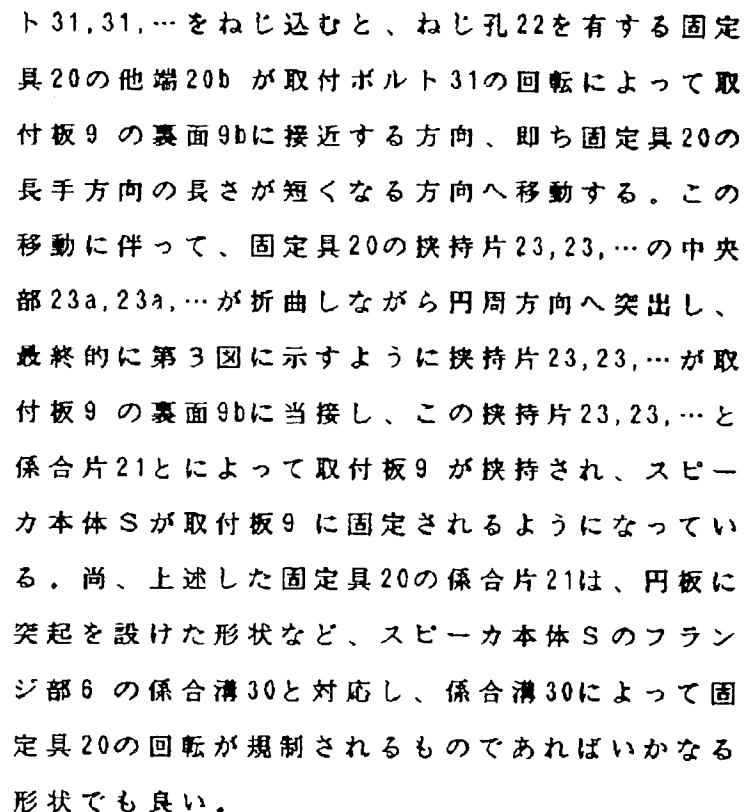 ト31,31,…をねじ込むと、ねじ孔22を有する固定
具20の他端20b が取付ボルト31の回転によって取
付板9 の裏面9bに接近する方向、即ち固定具20の
長手方向の長さが短くなる方向へ移動する。この
移動に伴って、固定具20の挟持片23,23,…の中央
部23a,23a,…が折曲しながら円周方向へ突出し、
最終的に第3図に示すように挟持片23,23,…が取
付板9 の裏面9bに当接し、この挟持片23,23,…と
係合片21とによって取付板9 が挟持され、スピー
カ本体Sが取付板9 に固定されるようになってい
る。尚、上述した固定具20の係合片21は、円板に
突起を設けた形状など、スピーカ本体Sのフラン
ジ部6 の係合溝30と対応し、係合溝30によって固
定具20の回転が規制されるものであればいかなる
形状でも良い。